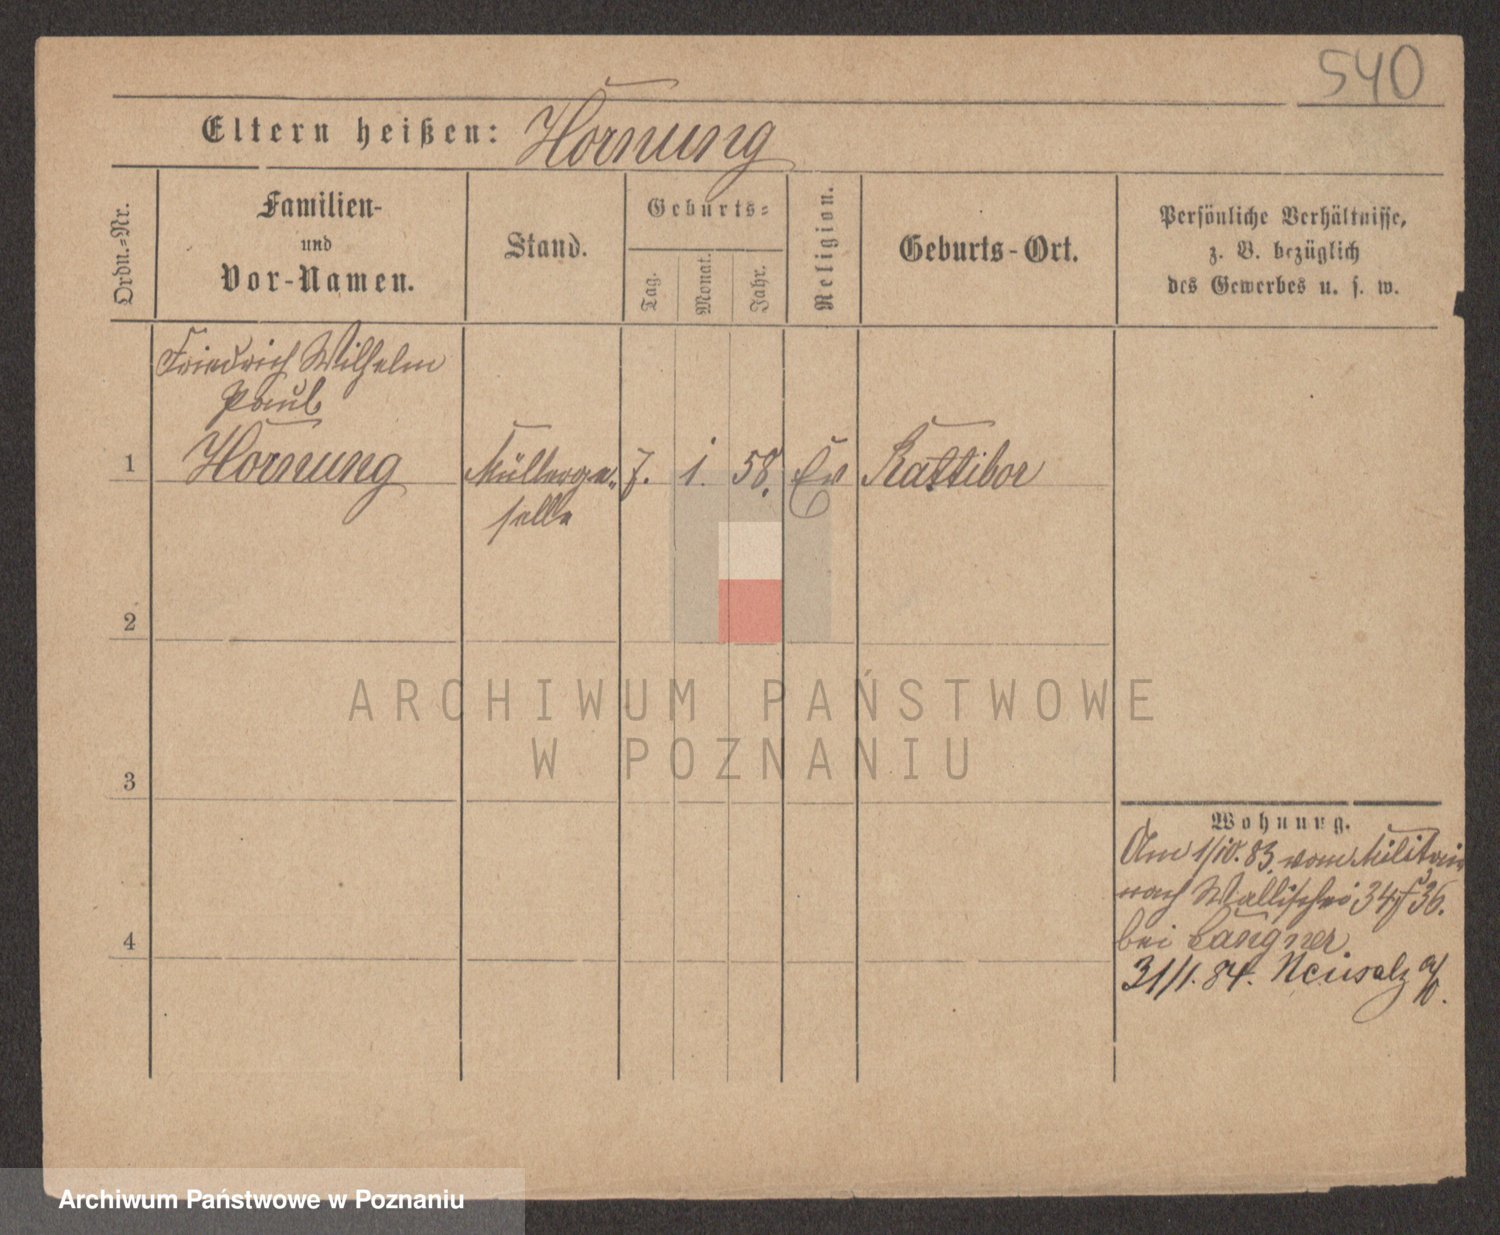 540
Eltern heißen: Hornung
Ordn.=Nr.
Familien-
und
Vor-Namen.
Stand.
Geburts=
Tag.
Monat.
Jahr.
Religion.
Geburts-Ort.
Persönliche Verhältnisse,
z. B. bezüglich
des Gewerbes u. s. w.
Friedrich Wilhelm
Paul
1 Hornung Müllerge„ 7. 1. 58. Ev Rattibor
selle
2
3
4
Wohnung.
Am 1/10. 83. vom Militair
nach Wallischei 34/36.
bei Langner.
31/1. 84. Neusalz a/O.
ARCHIWUM PAŃSTWOWE
W POZNANIU
Archiwum Państwowe w Poznaniu